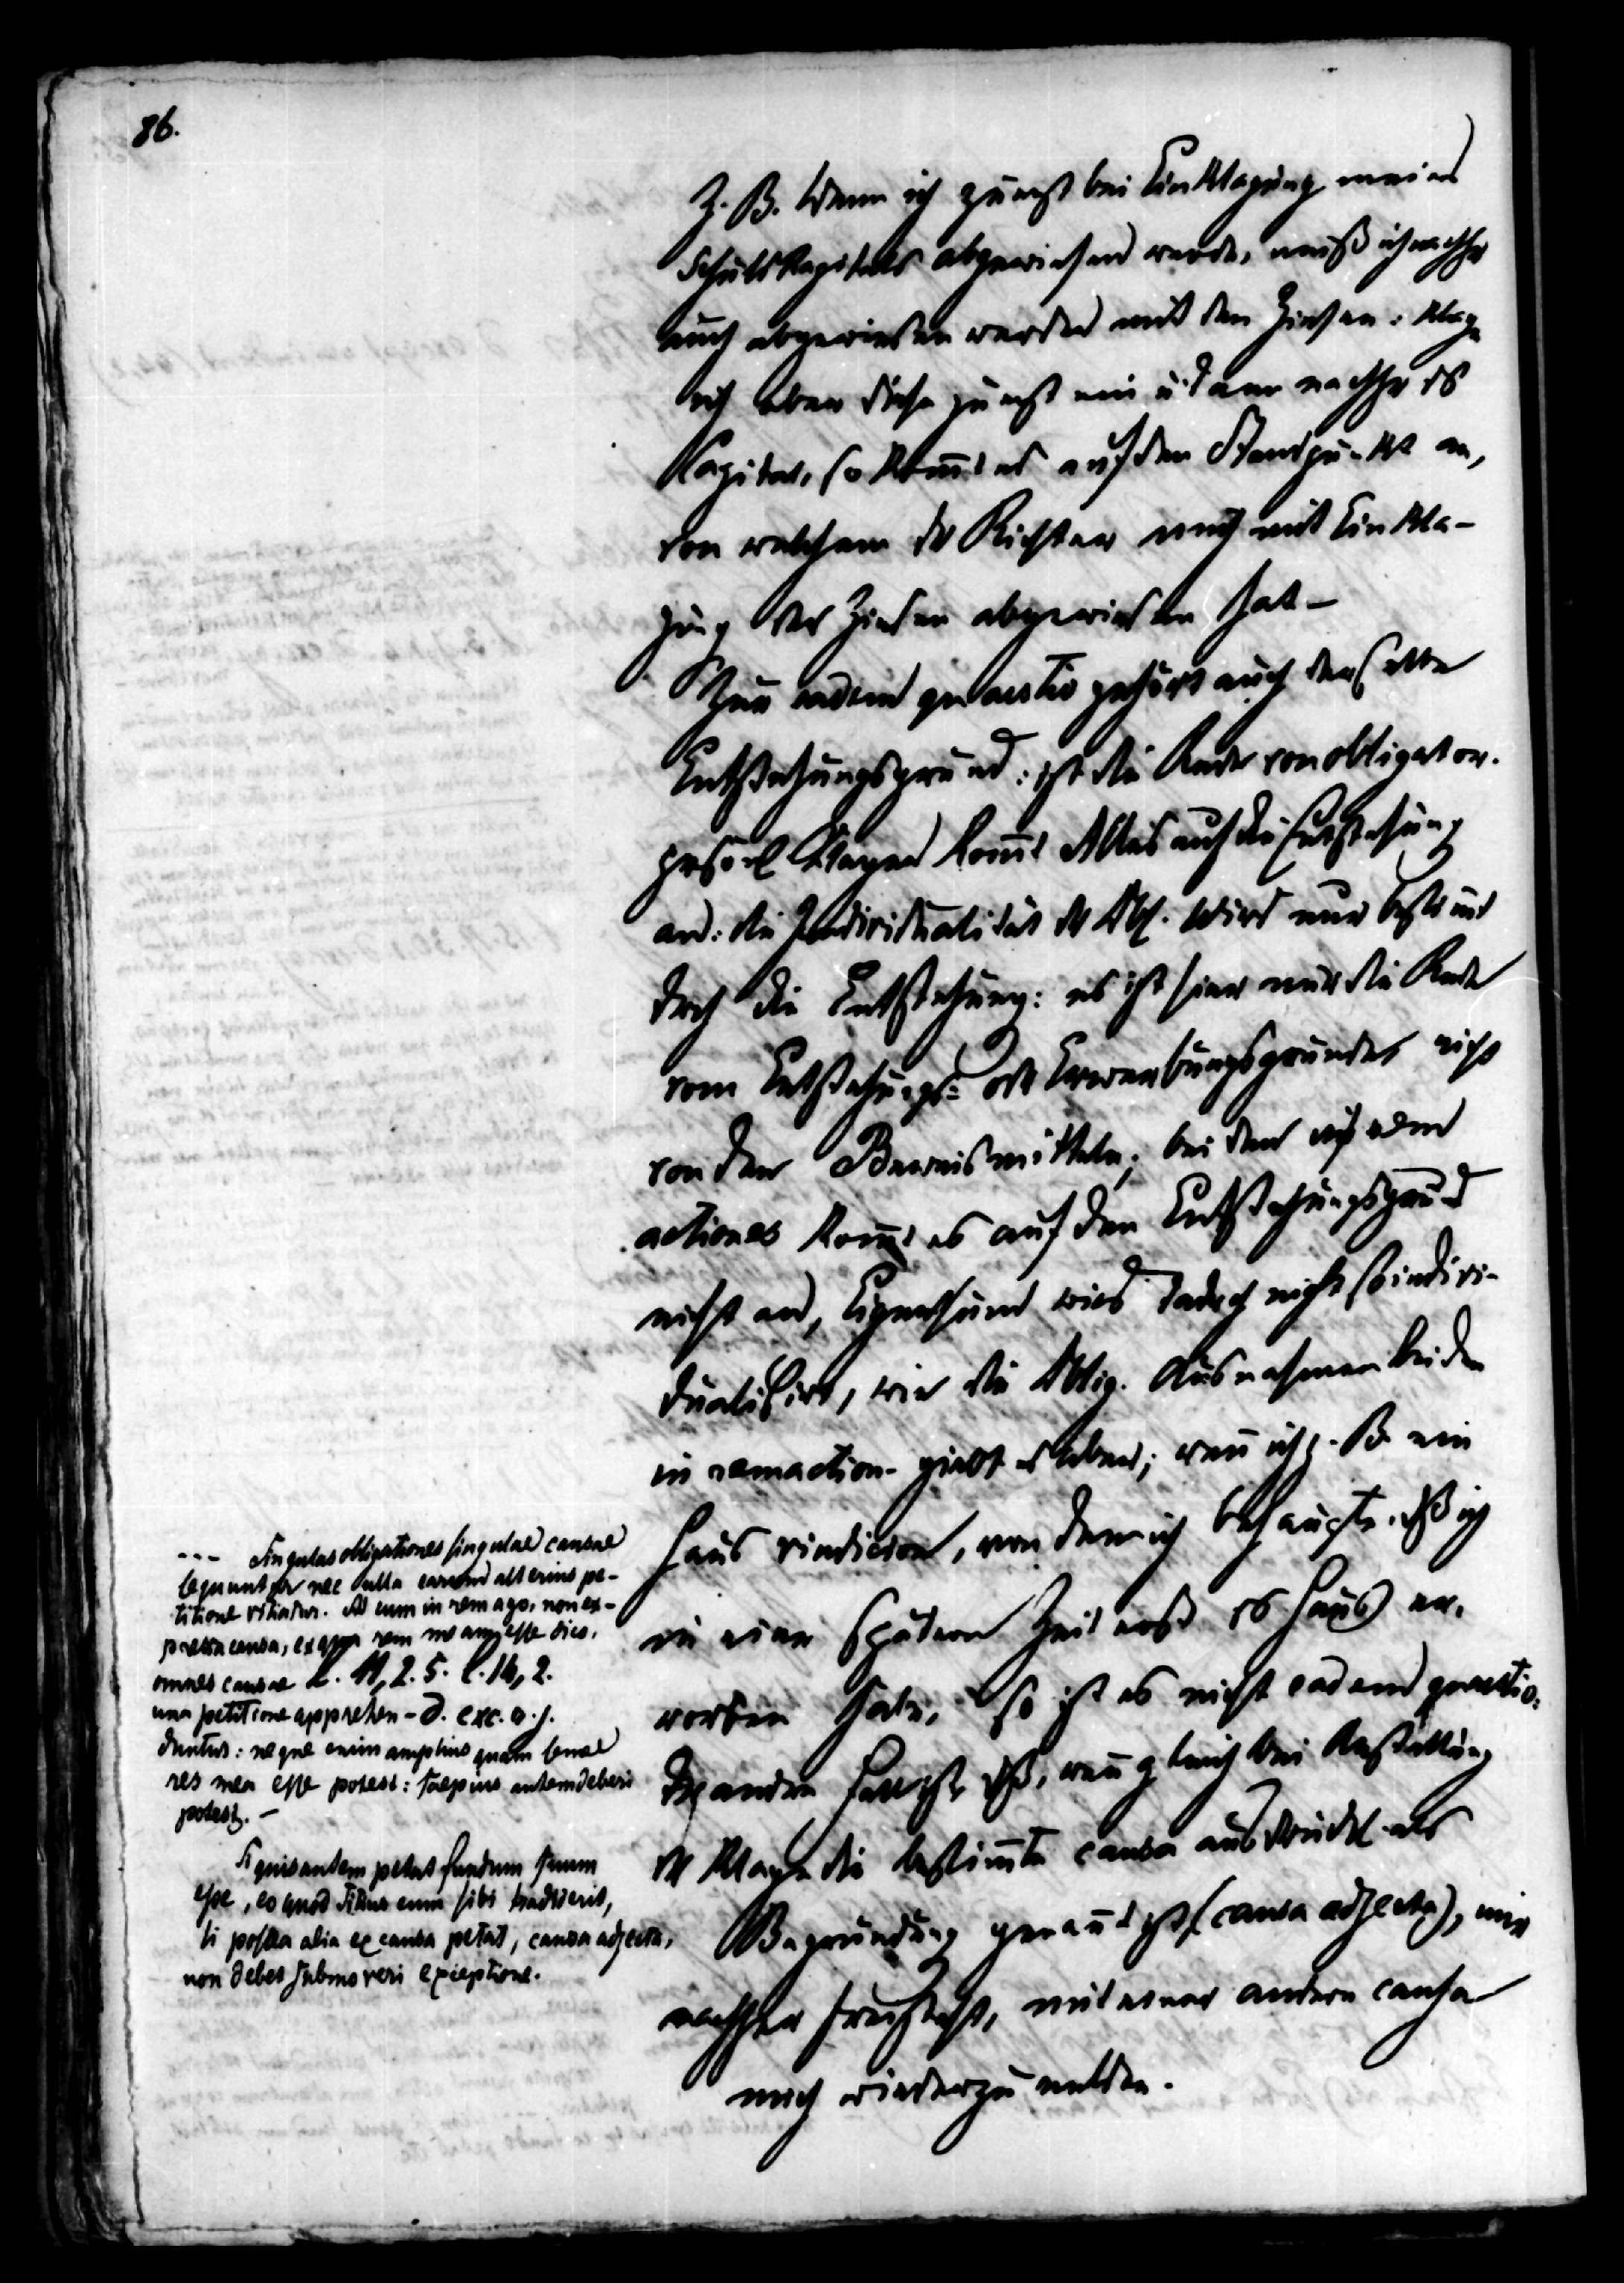 86.
Z. B. Wenn ich zuerst bei Einklagung meines
Schuldkapitals abgewiesen werde, muß ich nachher
auch abgewiesen werden mit den Zinsen: klage
ich aber diese zuerst ein u. dann nachher ds
Capital, so kom̄t es auf den Standpunkt an,
von welchem der Richter mich mit Einkla-
gung der Zinsen abgewiesen hat –
Zur eadem quaestio gehört auch derselbe
Entstehungsgrund: ist die Rede von obligator.
Klagen kom̄t Alles auf die Entstehung
an: die Individualität der Obl. wird nur bestim̄t
durch die Entstehung: es ist hier nur die Rede
vom Entstehungs- oder Erwerbungsgrunde, nicht
von den Beweismitteln; bei den in rem
actiones kom̄t es auf den Entstehungsgrund
nicht an, Eigenthum wird dadurch nicht so indivi-
dualisirt, wie die Oblig. Ausnahmen bei den
in rem action. giebt es aber; wen̄ ich z. B. ein
Haus vindicire, von dem ich behaupte, dß ich
in einer spätern Zeit erst ds Haus er-
worben habe, so ist es nicht eadem quaestio:
Der andre Fall ist, dß, wen̄ gleich bei Anstellung
der Klage die bestim̄te causa ausdrückl. als
Begründung genan̄t ist (causa adjecta), mir
nachher freisteht, mit einer andern causa
mich wieder zu melden.
--- Singulas obligationes singulae causae
sequuntur nec ulla earum alterius pe-
titione vitiatur. At cum in rem ago, non ex-
pressa causa, ex qua rem meam esse dico,
omnes causae L. 11, 2. 5. l. 14, 2.
una petitione apprehen- D. exc. r. j.
duntur: neque enim amplius quam semel
res mea esse potest: saepius autem deberi
potest. –
Si quis autem petat fundum suum
esse, eo quod Titius eum sibi tradiderit,
si postea alia ex causa petat, causa adjecta,
non debet submoveri exceptione.